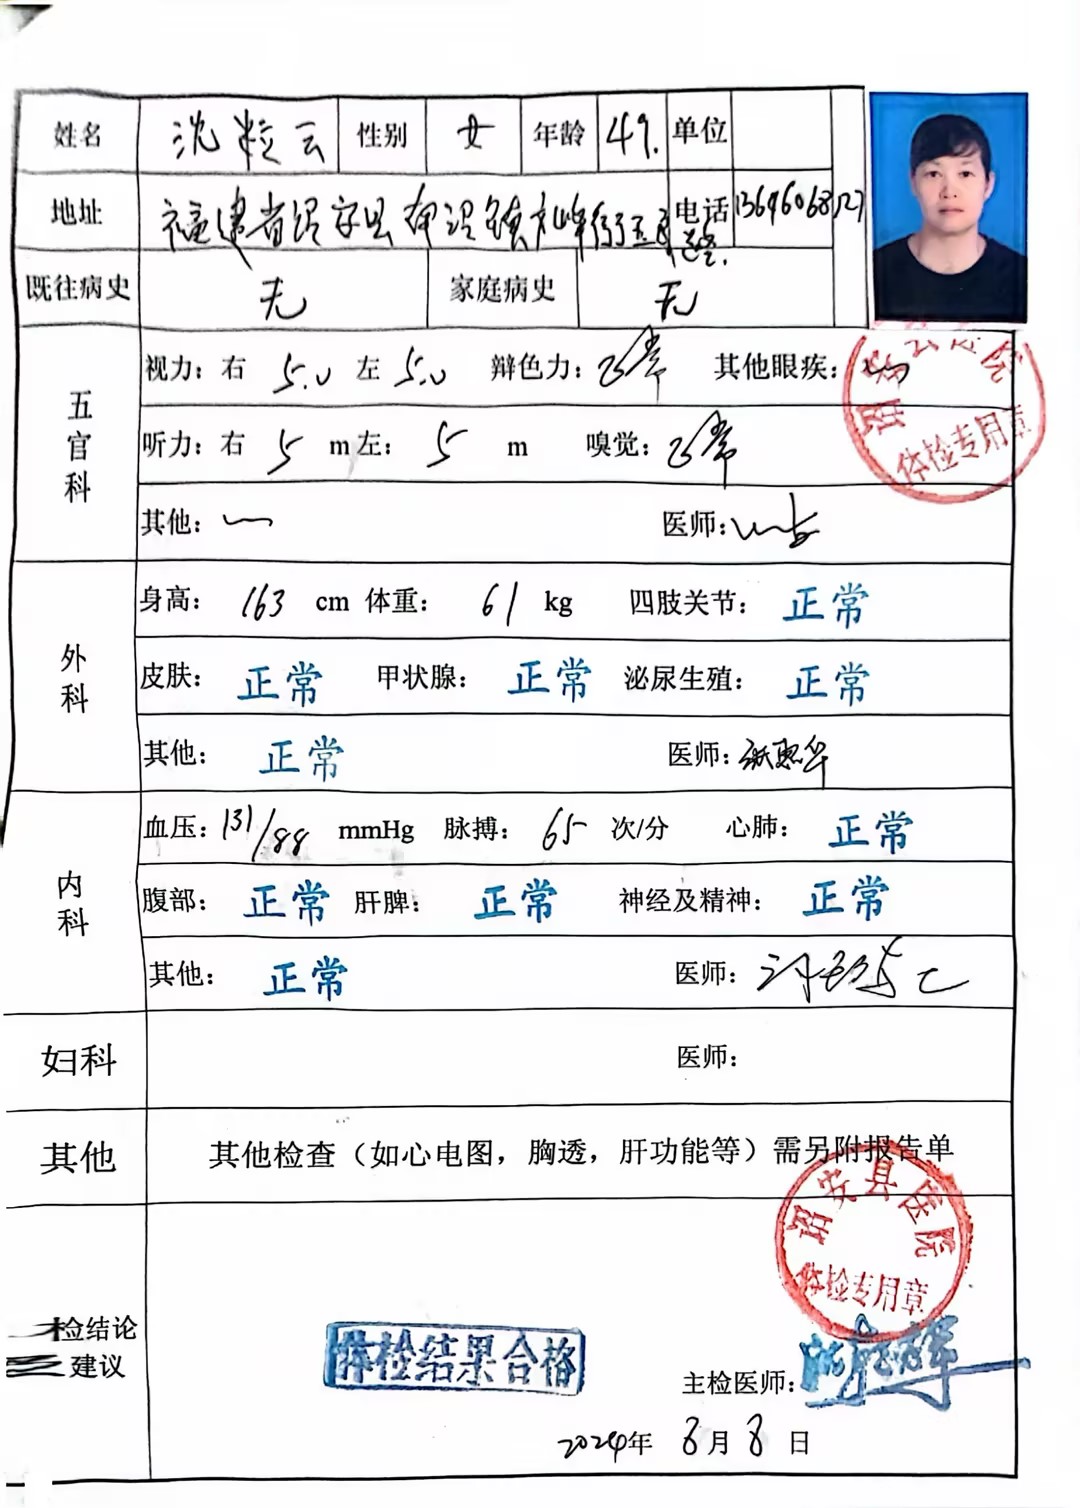 姓名 沈粒云 性别 女 年龄 49. 单位
地址 福建省诏安县 镇 街 电话
既往病史 无 家庭病史 无
五官科
视力：右 5.0 左 5.0 辩色力：正常 其他眼疾：
听力：右 5 m左： 5 m 嗅觉：正常
体检专用章
其他： 医师：
外科
身高： 163 cm 体重： 61 kg 四肢关节： 正常
皮肤： 正常 甲状腺： 正常 泌尿生殖： 正常
其他： 正常 医师：
内科
血压：131/88 mmHg 脉搏： 65 次/分 心肺： 正常
腹部： 正常 肝脾： 正常 神经及精神： 正常
其他： 正常 医师：
妇科 医师：
其他 其他检查（如心电图，胸透，肝功能等）需另附报告单
诏安县医院
体检专用章
检结论
建议
体检结果合格
主检医师：
2024年 8月 8 日